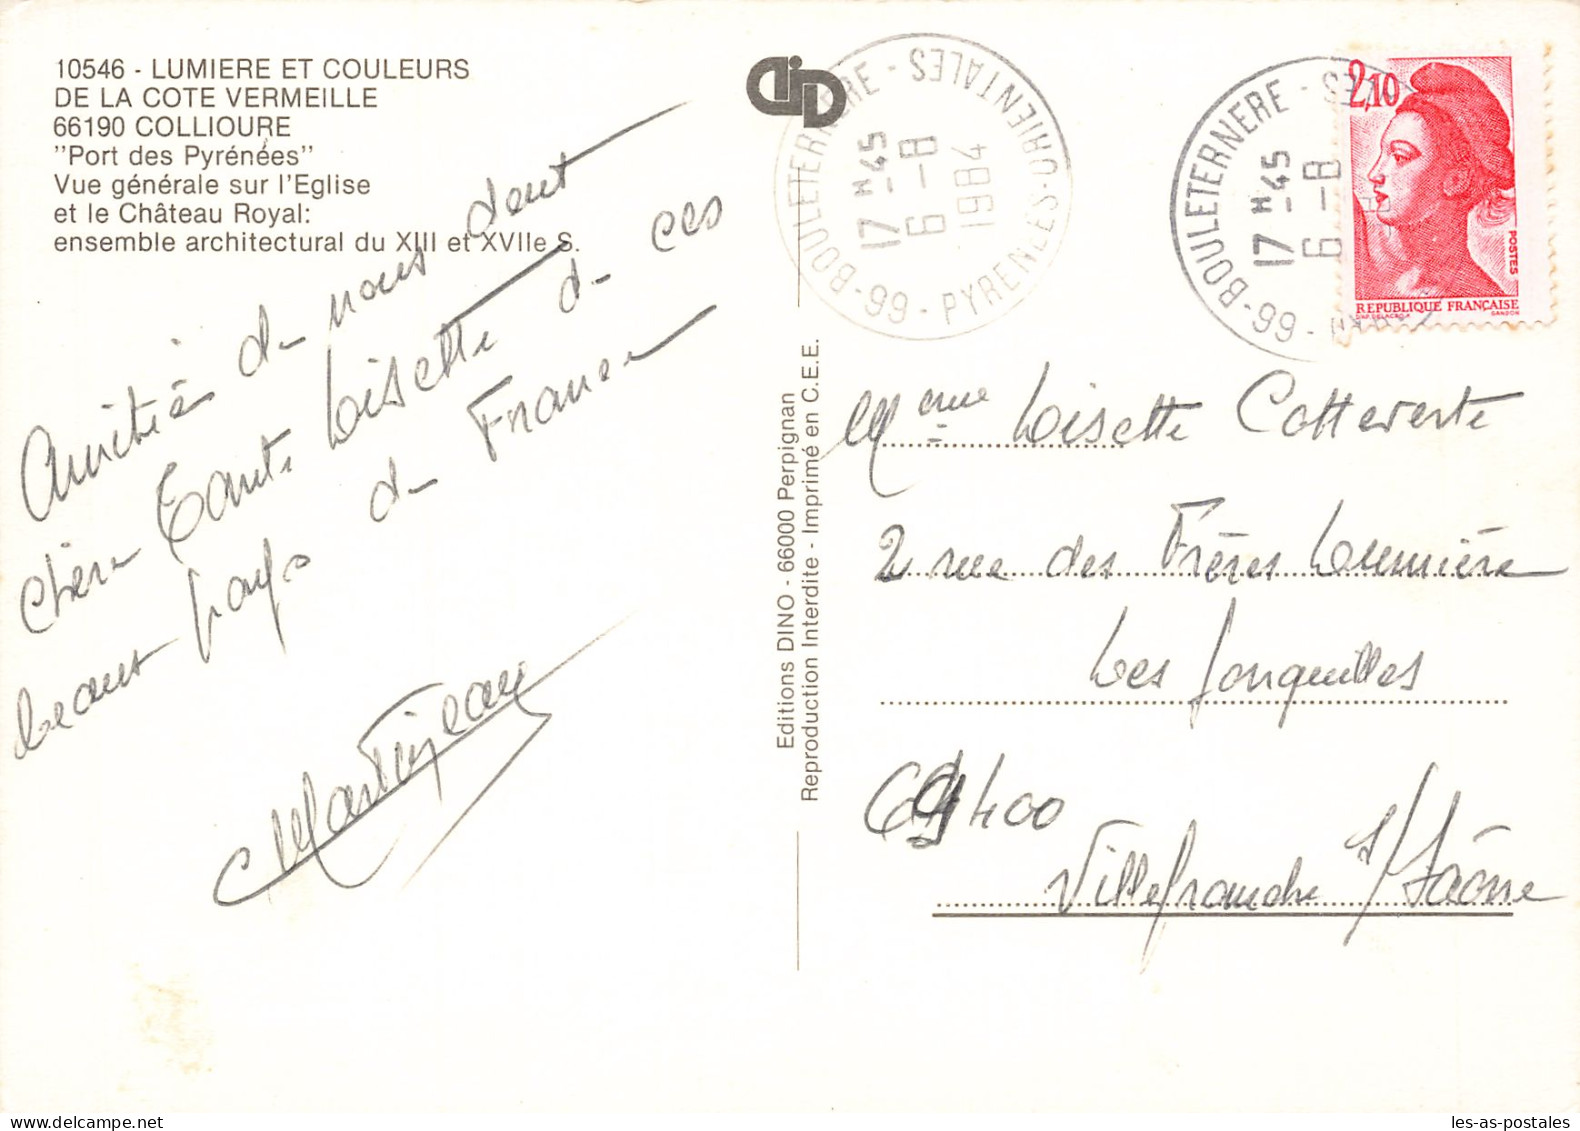 10546 - LUMIERE ET COULEURS
DE LA COTE VERMEILLE
66190 COLLIOURE
"Port des Pyrénées"
Vue générale sur l'Eglise
et le Château Royal:
ensemble architectural du XIII et XVIIe S.
Amitiés de nous dent
Chère Tante Lisette de ces
beaux pays de France
Martinjean
Editions DINO - 66000 Perpignan
Reproduction Interdite - Imprimé en C.E.E.
66 - BOULETERNERE - PYRENEES-ORIENTALES
17 H 45
6 - 8
1984
66 - BOULETERNERE
17 H 45
6 - 8
2,10
POSTES
REPUBLIQUE FRANÇAISE
GANDON
Mme Lisette Cotteverte
2 rue des Frères Lumière
Les Jonquilles
69400
Villefranche s/ Saône
les-as-postales